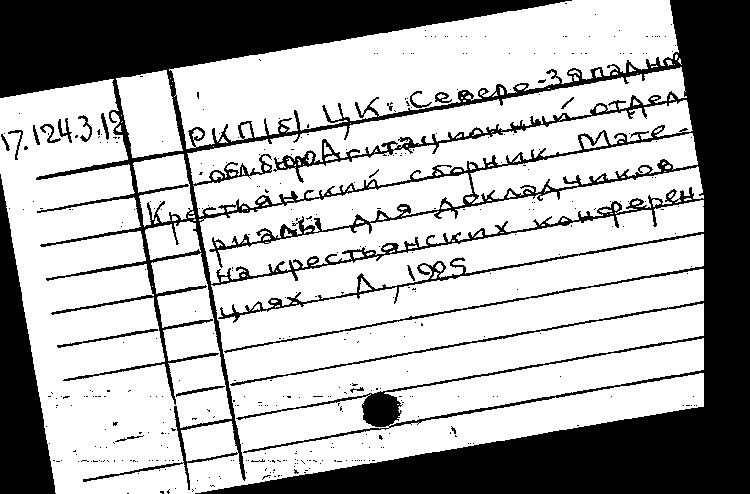 17.124.3.12
РКП(б). ЦК. Северо-Западное
обл.бюро. Агитационный отдел.
Крестьянский сборник. Мате-
риалы для докладчиков
на крестьянских конферен-
циях. Л., 1925